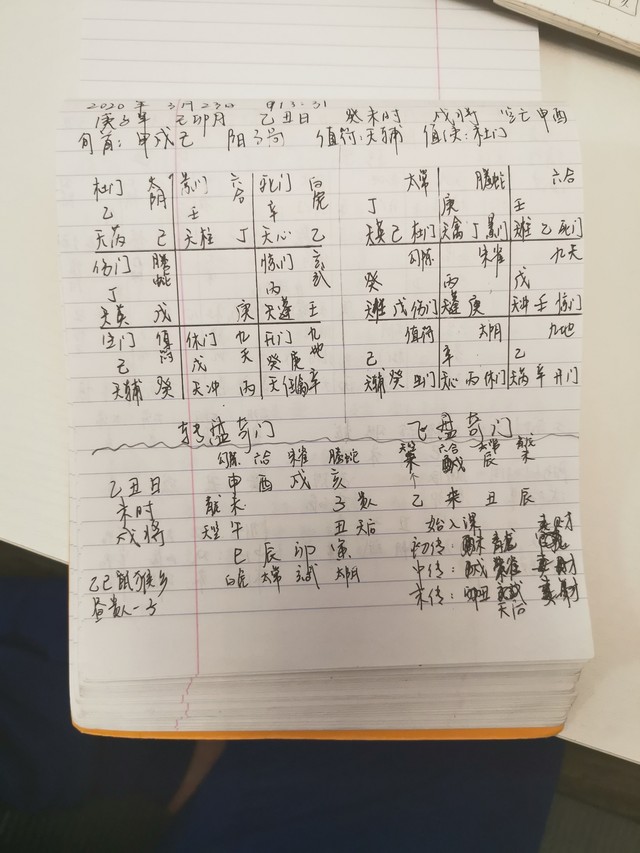 2020年 3月23日 13:31
庚子年 己卯月 乙丑日 癸未时 戌将 空亡申酉
旬首:甲戌己 阳三局 值符:天辅 值使:杜门
杜门 太阴 景门 六合 死门 白虎
乙 壬 辛
天芮 己 天柱 丁 天心 乙
伤门 螣蛇 惊门 玄武
丁 丙
天英 戊 庚 天蓬 壬
生门 值符 休门 九天 开门 九地
己 戊 癸 庚
天辅 癸 天冲 丙 天任 辛
太常 螣蛇 六合
丁 庚 壬
天英 己 杜门 天禽 丁 景门 天柱 乙 死门
勾陈 朱雀 九天
癸 丙 戊
天任 戊 伤门 天蓬 庚 天冲 壬 惊门
值符 太阴 九地
己 辛 乙
天辅 癸 生门 天心 丙 休门 天芮 辛 开门
转盘奇门 飞盘奇门
勾陈 六合 朱雀 螣蛇
乙丑日 申 酉 戌 亥
未时 青龙 未 子 贵人
戌将 天空 午 丑 天后
巳 辰 卯 寅
白虎 太常 玄武 太阴
乙己鼠猴乡
昼贵人一子
六合
辰 未
乙 未 丑 辰
始入课
初传: 青龙
中传: 朱雀
末传:
天后